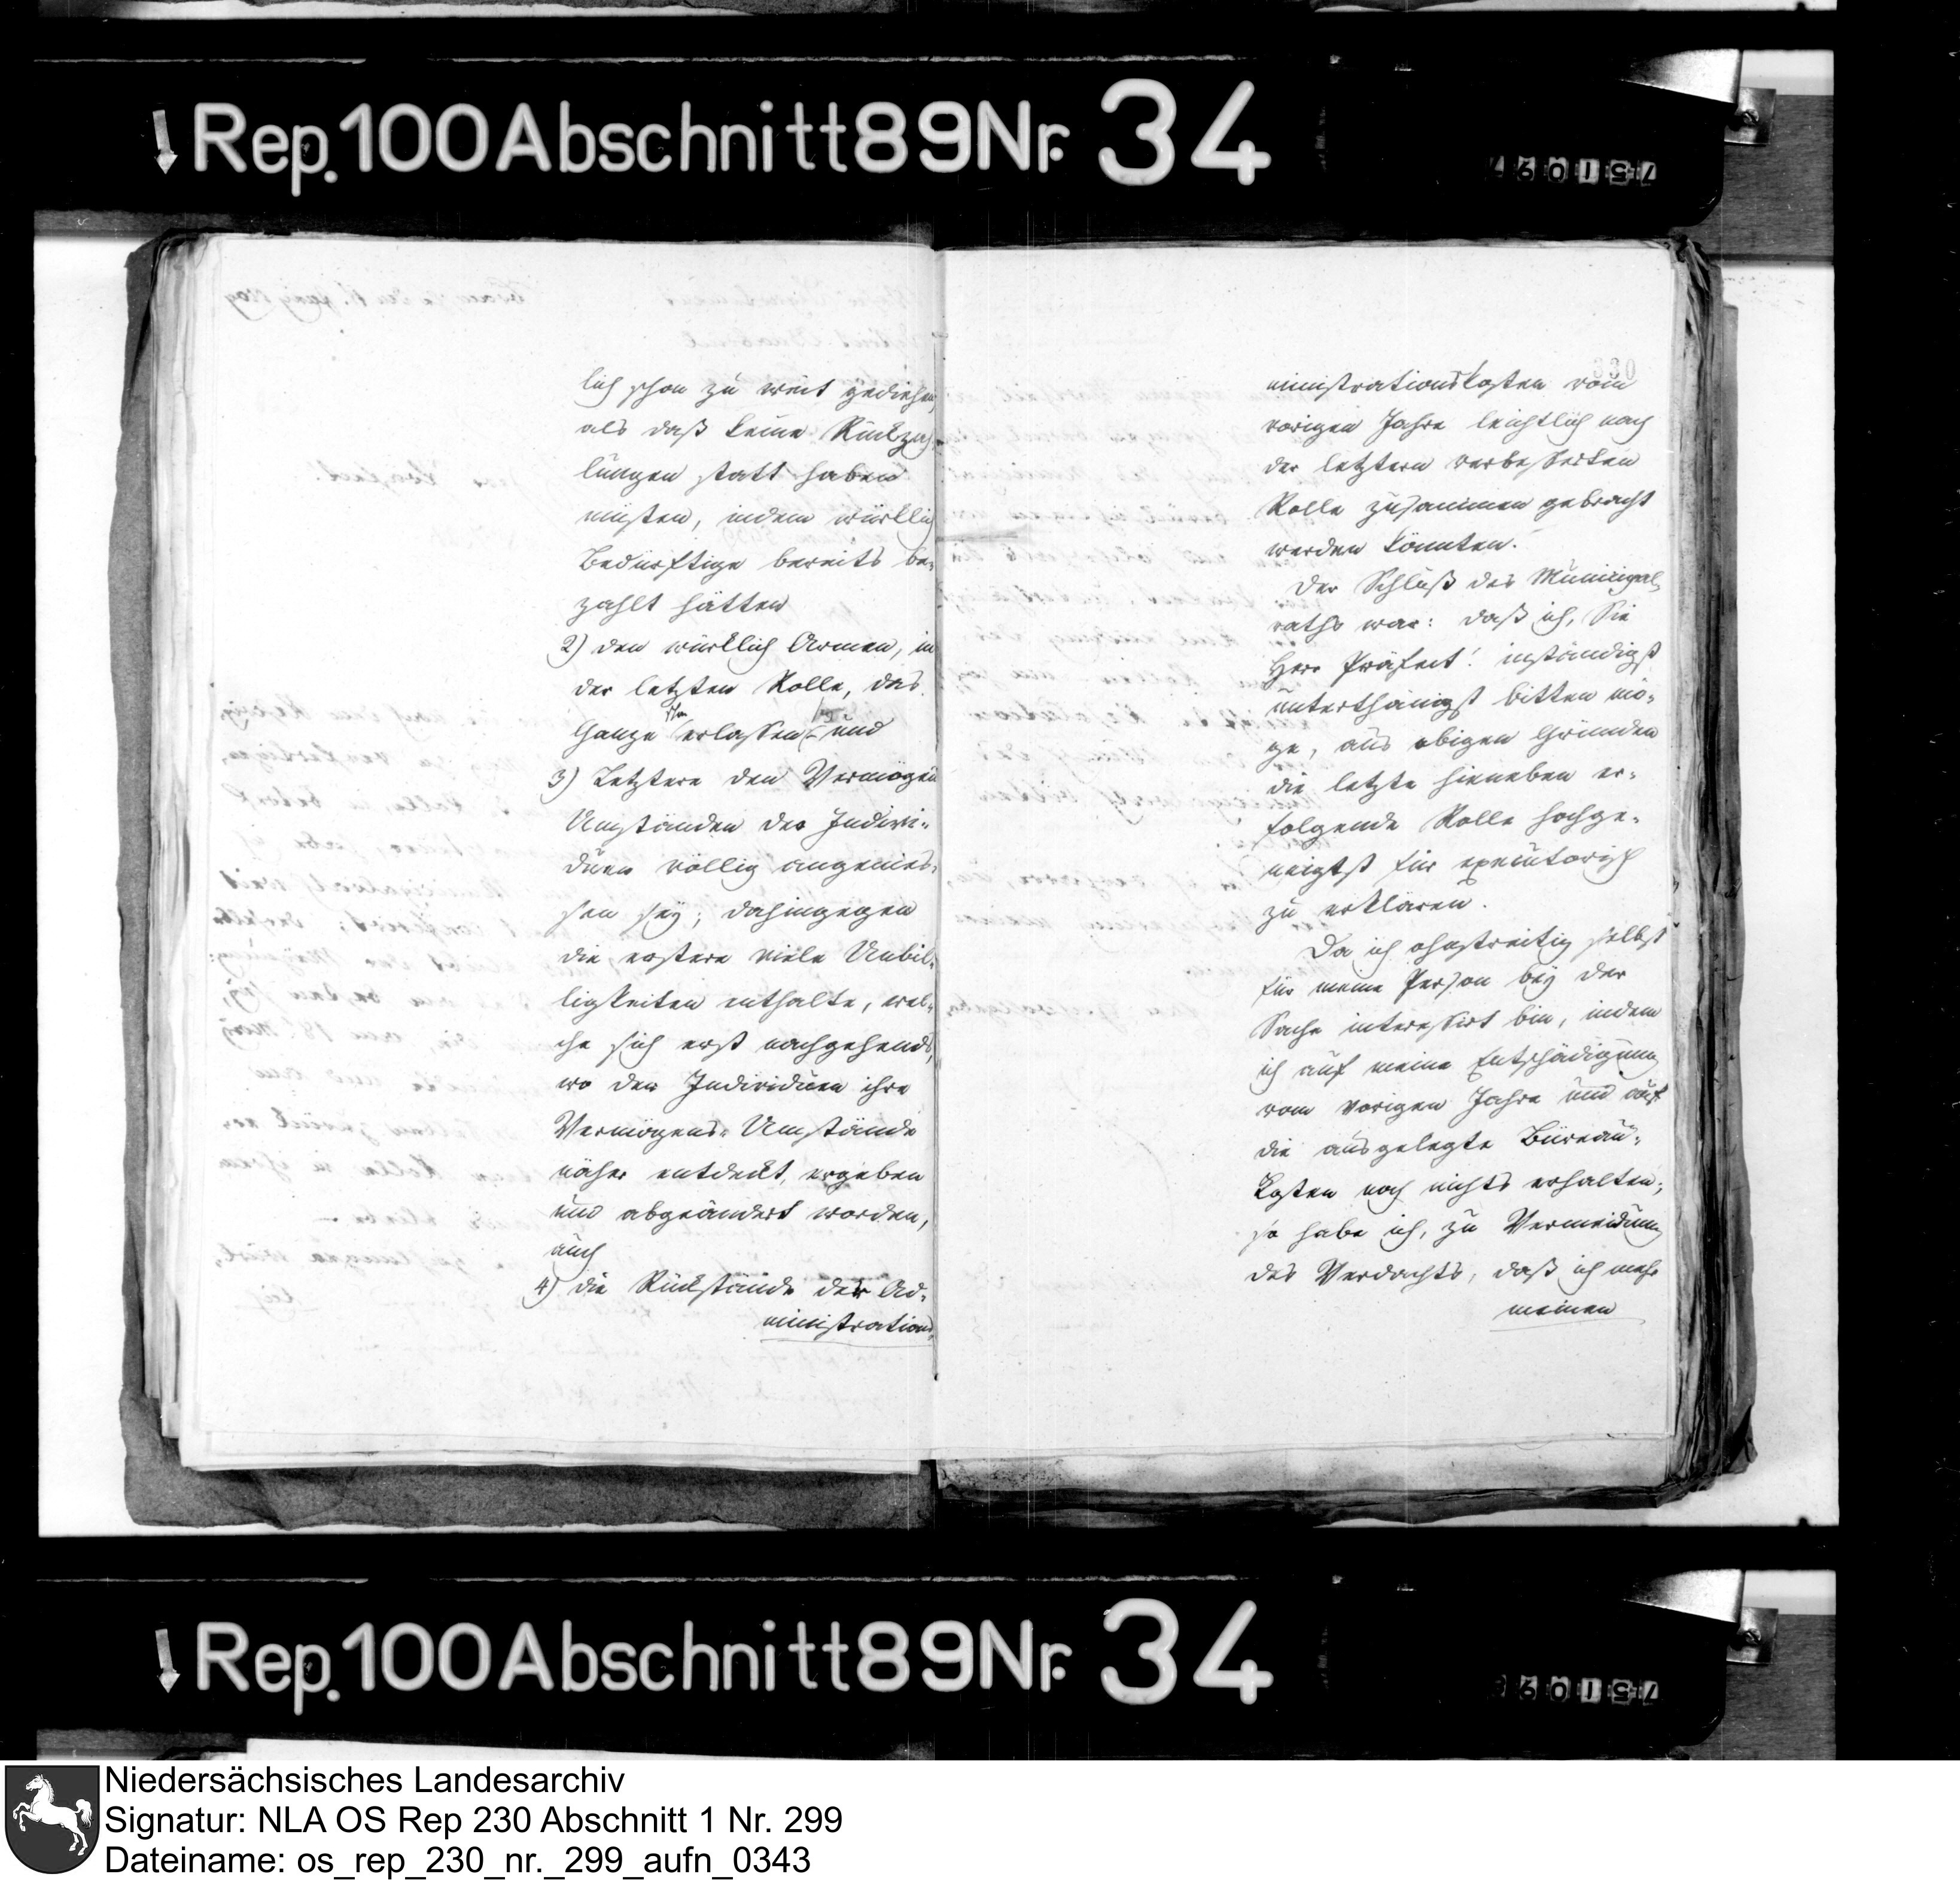 Rep. 100 Abschnitt 89 Nr. 34
lich schon zu weit gediehen,
als daß keine Rückzah-
lungen statt haben
müsten, indem würklich
Bedürftige bereits be-
zahlt hätten
2) den würklich Armen, in
der letzten Rolle, das
Ganze erlassen und
3) Letztere den Vermögen
Umständen der Indivi-
duen völlig angemes-
sen sey; dahingegen
die erstere viele Unbil-
ligkeiten enthalte, wel-
che sich erst nachgehends,
wo den Individuen ihre
Vermögens-Umstände
näher entdeckt, ergeben
und abgeändert worden,
auch
4) die Rückstände der Ad-
ministrations
330
ministrationskosten vom
vorigen Jahre leichtlich nach
der letztern verbesserten
Rolle zusammen gebracht
werden könnten.
Der Schluß des Municipal
raths war: daß ich, Sie
Herr Präfect! inständigst
unterthänigst bitten mö-
ge, aus obigen Gründen
die letzte hieneben er-
folgende Rolle hochge-
neigtst für executorisch
zu erklären.
Da ich ohnstreitig selbst
für meine Person bey der
Sache interessirt bin, indem
ich auf meine Entschädigung
vom vorigen Jahre und auf
die ausgelegte Büreau-
kosten noch nichts erhalten;
so habe ich, zu Vermeidung
des Verdachts, daß ich mehr
meinen
Rep. 100 Abschnitt 89 Nr. 34
Niedersächsisches Landesarchiv
Signatur: NLA OS Rep 230 Abschnitt 1 Nr. 299
Dateiname: os_rep_230_nr._299_aufn_0343